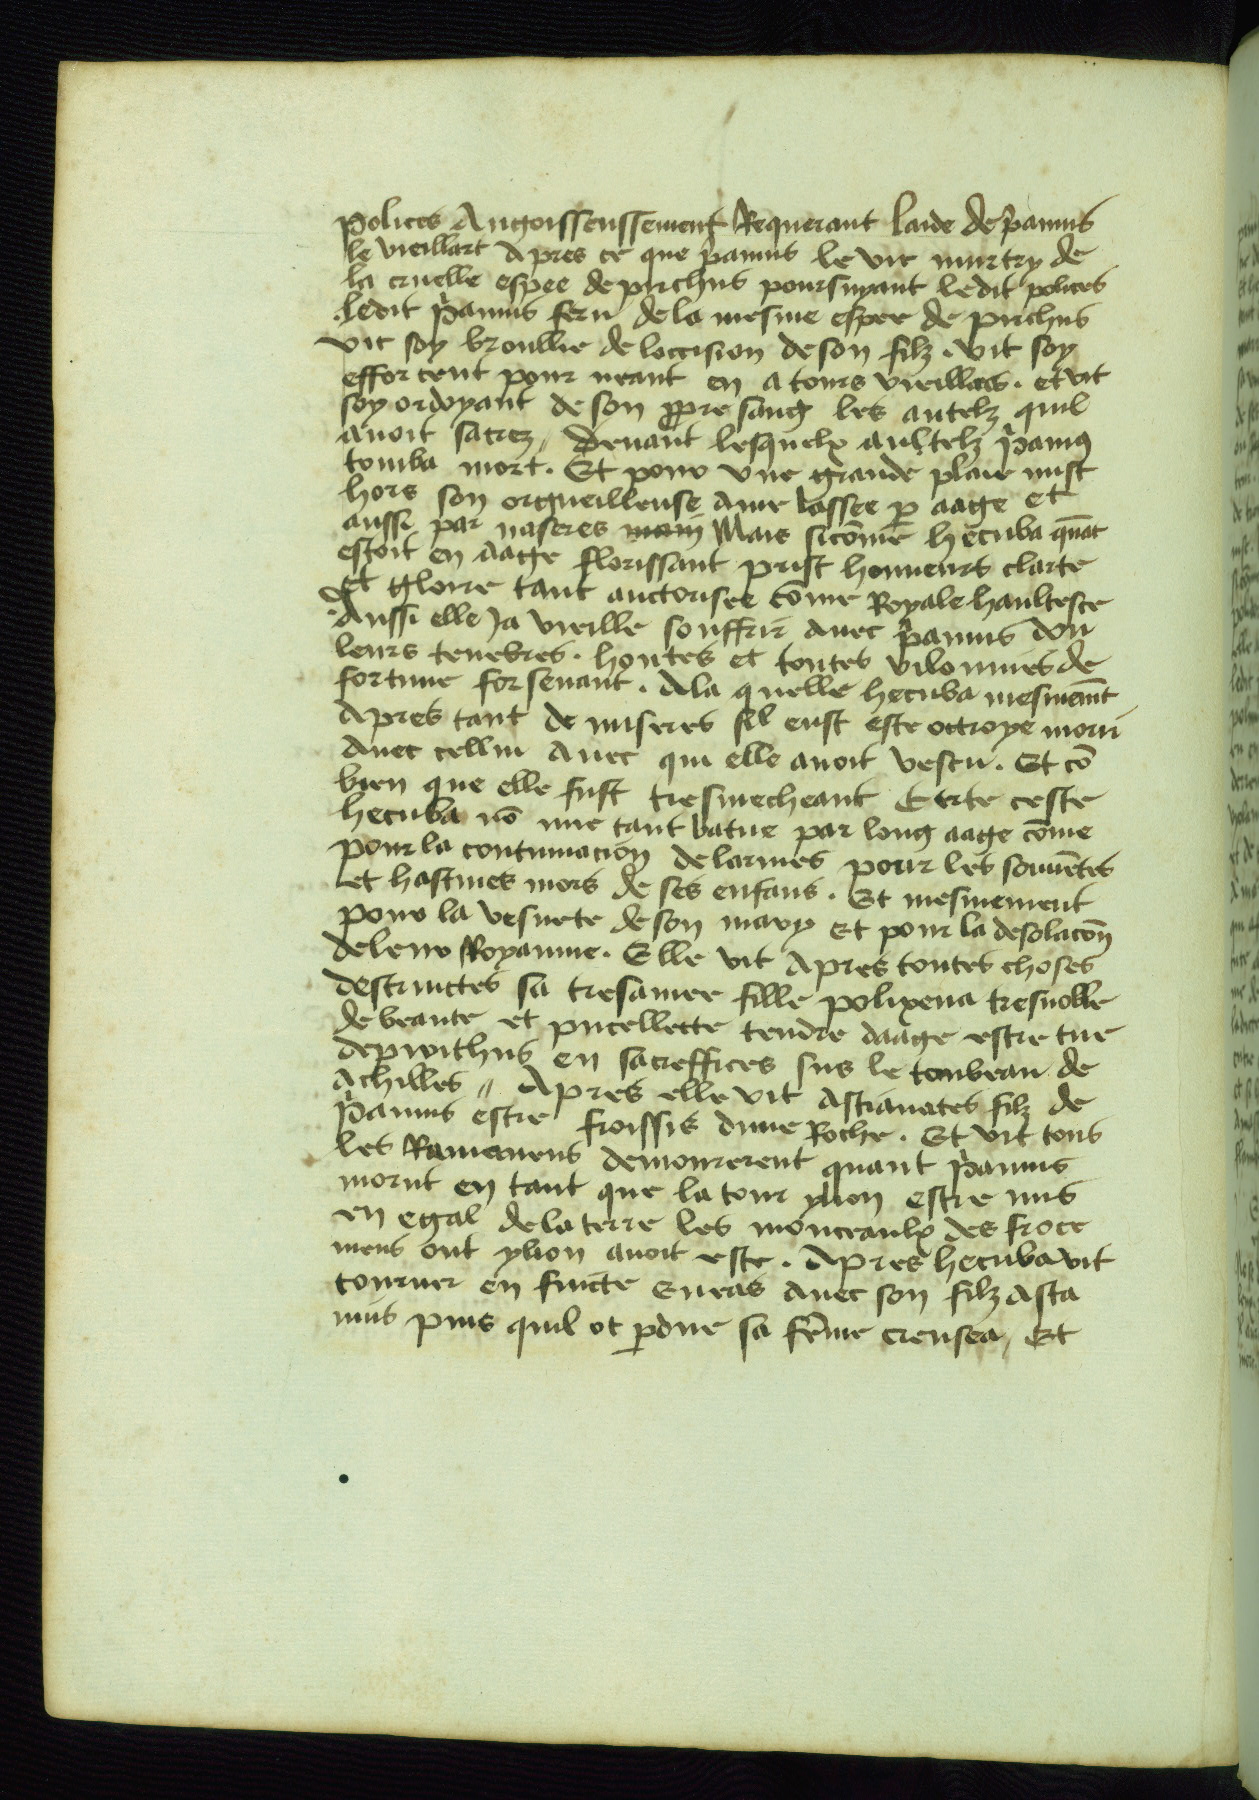 polites Angoisseussement Requerant laide de p̃amus
le vieillart Apres ce que p̃amus le vit murtry de
la cruelle espee de pirchus poursuyant ledit polites
Ledit p̃amus feru de la mesme espee de pirchus
vit soy broullie de loccision de son filz . vit soy
efforcent pour neant en atours vieillars . et vit
soy ordoyant de son ppre sang les autelz quil
avoit sacrez // devant lesquelx aultelz p̃amus
tomba mort . Et pour une grande plaie mist
hors son orgueilleuse ame lassee p aage et
aussi par miseres Mais sicōme hecuba quāt
estoit en aage florissant prist honneurs clarte
et gloire tant auctorisee cōme Royale haultesce
Aussi elle Ja vieille souffrir avec p̃amus dou
leurs tenebres . hontes et toutes vilonnies de
fortune forsenant . Ala quelle hecuba mesmemt̄
Apres tant de miseres sil eust este octroye morir
Avec cellui Avec qui elle avoit vescu . Et cō
bien que elle fust tresmecheant Certe ceste
hecuba nō mie tant batue par long aage cōme
pour la continuacion de larmes pour les souvētes
et hastives mors de ses enfans . Et mesmement
pour la vesuete de son mary Et pour la desolacōn
de leur Royaume . Elle vit Apres toutes choses
destruictes sa tresamee fille polixena tresnoble
de beaute et pucellette tendre daage estre tue
de pirrithus en sacreffices sus le tombeau de
Achilles // Apres elle vit Astianates filz de
p̃amus estre froissis dune Roche . Et vit tous
les Ramenens demourerent quant p̃amus
morut en tant que la tour ylion estre mis
en egal de la terre les monceaulx des froce
mens out ylion avoit este . Apres hecuba vit
tourner en fuicte Eneas avec son filz Asca
nius puis quil ot pdue sa fēme creusea / Et